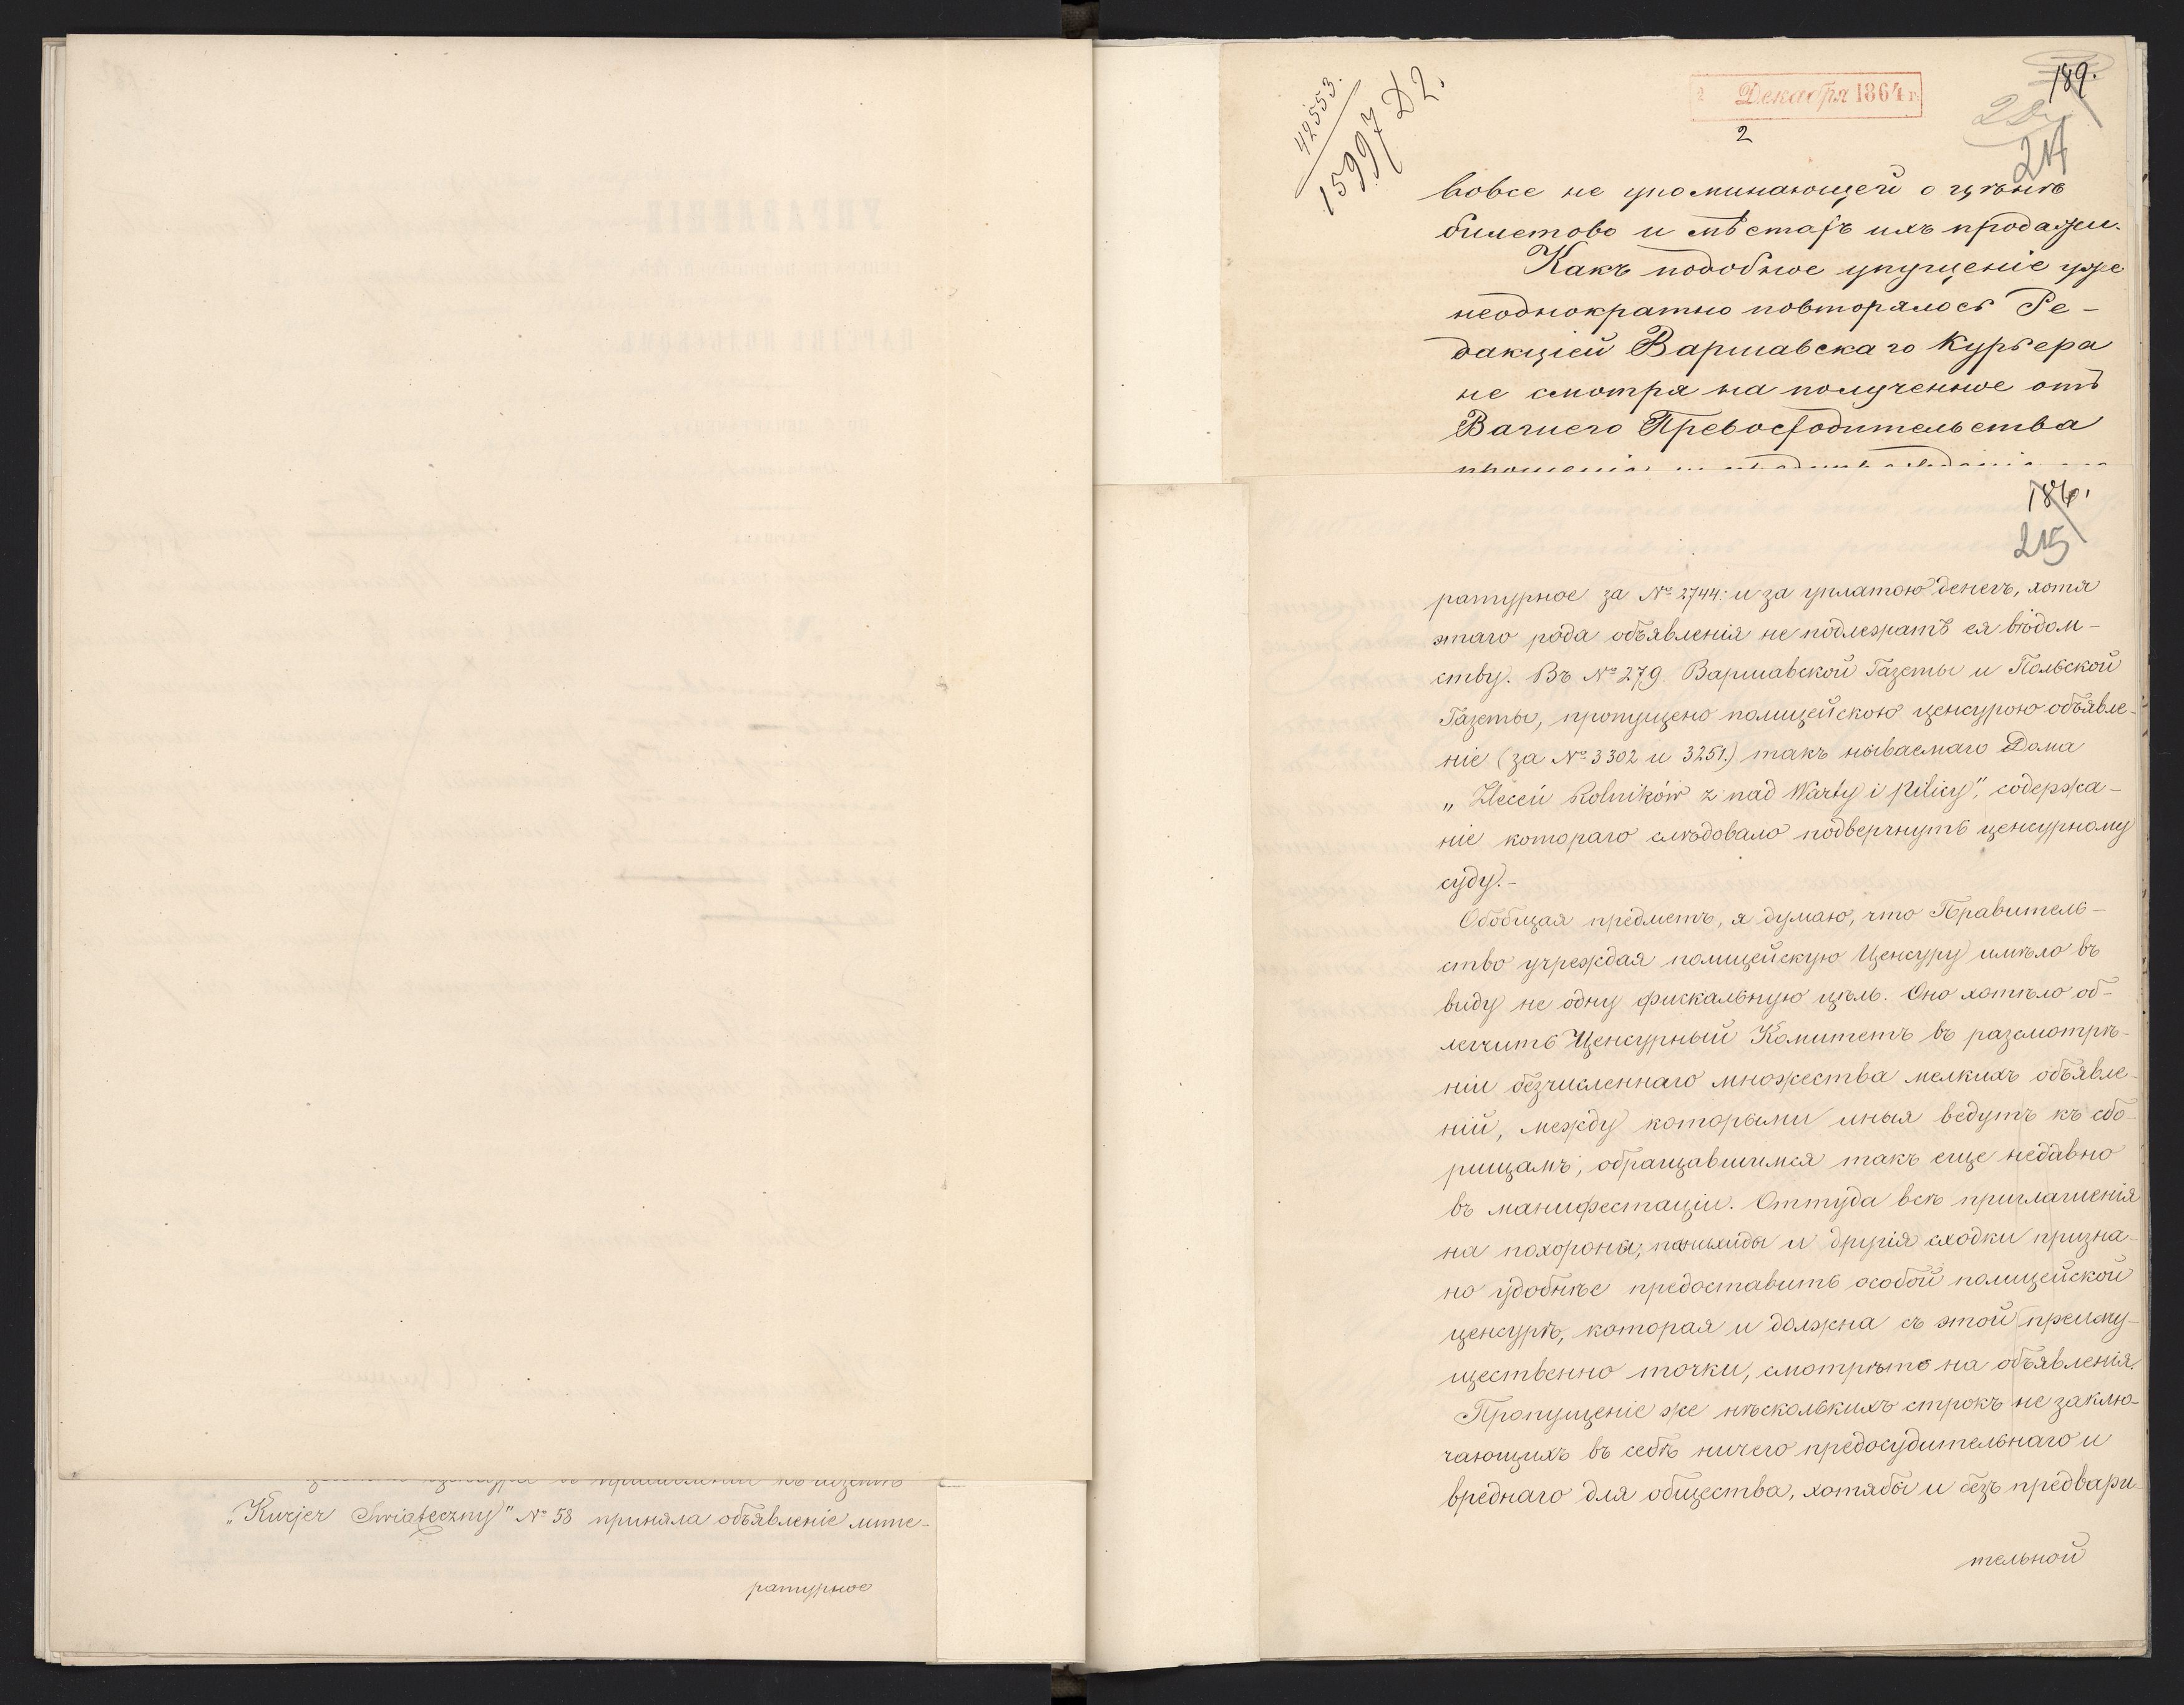 „Kurjer Swiąteczny" № 58 приняла объявленіе лите-
ратурное
42553.
15997 Д2.
2 Декабря 1864 г.
2
189.
214
вовсе не упоминающей о цѣнѣ
билетовъ и мѣстахъ ихъ продажи.
Какъ подобное упущеніе уже
неоднократно повторялось Ре-
дакціей Варшавскаго Курьера
не смотря на полученное отъ
Вашего Превосходительства
186.
215
ратурное за № 2744: и за уплатою денегъ, хотя
этаго рода объявленія не подлежатъ ея вѣдом-
ству. Въ № 279 Варшавской Газеты и Польской
Газеты, пропущено полицейскою цензурою объявле-
ніе (за № 3302 и 3251.) такъ нываемаго Дома
„Zlecéń Rolników z nad Warty i Pilicy", содержа-
ніе котораго слѣдовало подвергнуть цензурному
суду.-
Обобщая предметъ, я думаю, что Правитель-
ство учреждая полицейскую Цензуру имѣло въ
виду не одну фискальную цѣль. Оно хотѣло об-
легчить Цензурный Комитетъ въ разсмотрѣ-
ніи безчисленнаго множества мелкихъ объявле-
ній, между которыми иныя ведутъ къ сбо-
рищамъ, обращавшимся такъ еще недавно
въ манифестаціи. Оттуда всѣ приглашенія
на похороны, паныхиды и другія сходки призна-
но удобнѣе предоставить особой полицейской
цензурѣ, которая и должна съ этой преиму-
щественно точки, смотрѣть на объявленія.
Пропущеніе же нѣсколькихъ строкъ не заклю-
чающихъ въ себѣ ничего предосудительнаго и
вреднаго для общества, хотябы и безъ предвари-
тельной